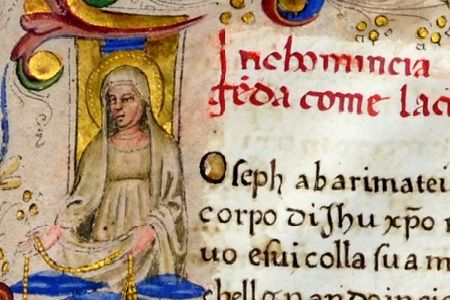 Inchomincia
gẽda come la ci
Oseph abarimatei
corpo di Jhu xp̄o
uo e sui colla sua m